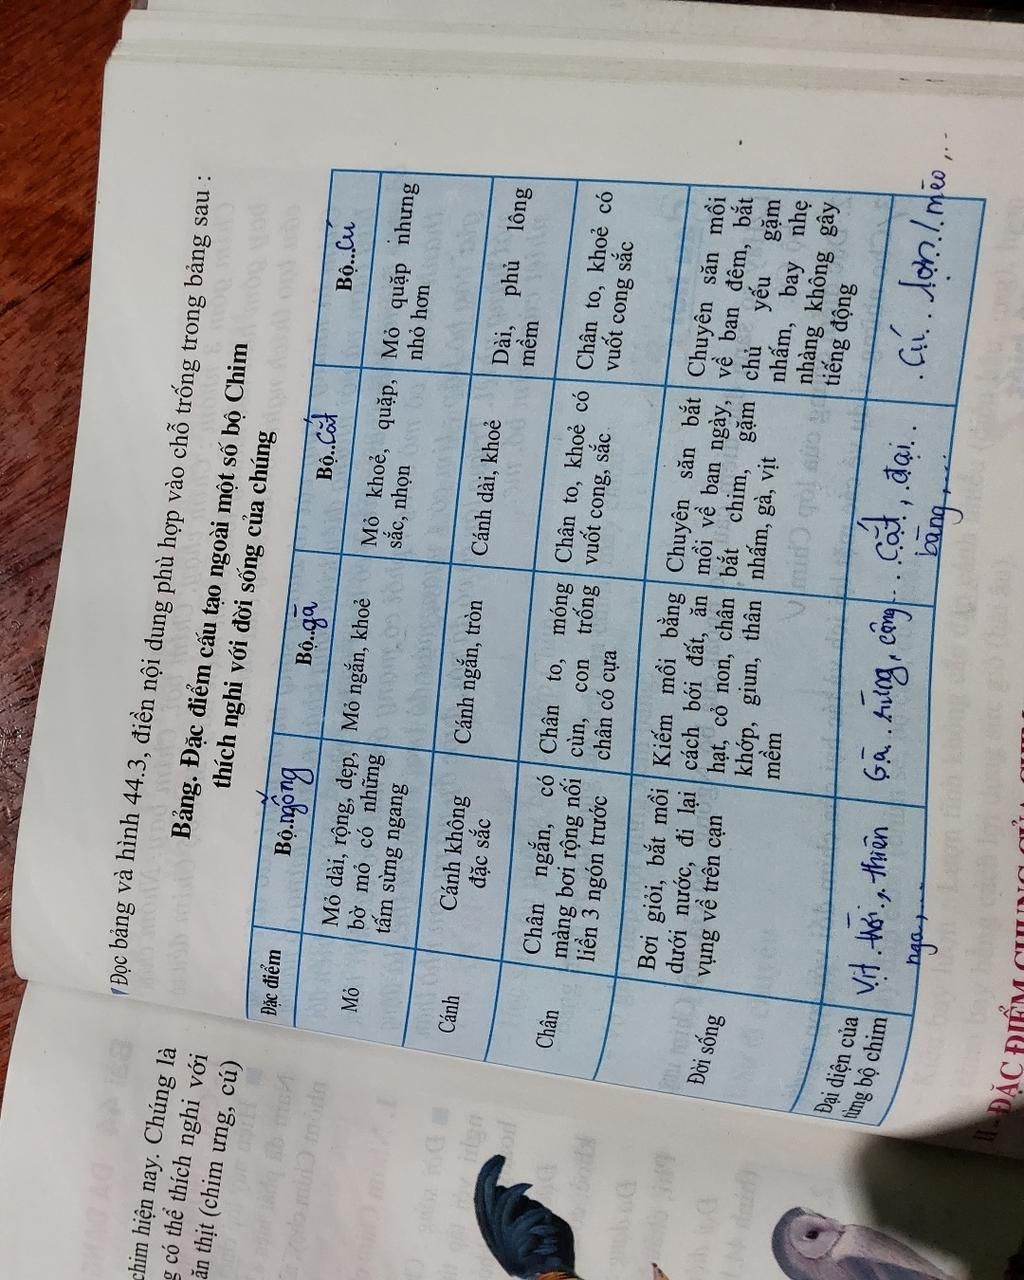 chim hiện nay. Chúng là
g có thể thích nghi với
ăn thịt (chim ưng, cú)
Đọc bảng và hình 44.3, điền nội dung phù hợp vào chỗ trống trong bảng sau :
Bảng. Đặc điểm cấu tạo ngoài một số bộ Chim
thích nghi với đời sống của chúng
Đặc điểm
Bộ..ngỗng
Bộ..gà
Bộ..Cắt
Bộ..Cú
Mỏ
Mỏ dài, rộng, dẹp,
bờ mỏ có những
tấm sừng ngang
Mỏ ngắn, khoẻ
Mỏ khoẻ, quặp,
sắc, nhọn
Mỏ quặp nhưng
nhỏ hơn
Cánh
Cánh không
đặc sắc
Cánh ngắn, tròn
Cánh dài, khoẻ
Dài, phủ lông
mềm
Chân
Chân ngắn, có
màng bơi rộng nối
liền 3 ngón trước
Chân to, móng
cùn, con trống
chân có cựa
Chân to, khoẻ có
vuốt cong, sắc
Chân to, khoẻ có
vuốt cong sắc
Đời sống
Bơi giỏi, bắt mồi
dưới nước, đi lại
vụng về trên cạn
Kiếm mồi bằng
cách bới đất, ăn
hạt, cỏ non, chân
khớp, giun, thân
mềm
Chuyên săn bắt
mồi về ban ngày,
bắt chim, gặm
nhấm, gà, vịt
Chuyên săn mồi
về ban đêm, bắt
chủ yếu gặm
nhấm, bay nhẹ
nhàng không gây
tiếng động
Đại diện của
từng bộ chim
Vịt . trời , thiên
nga,...
Gà . rừng, công
Cắt , đại..
bàng,...
. Cú . . lợn../. mèo,...
II - ĐẶC ĐIỂM CHUNG CỦA